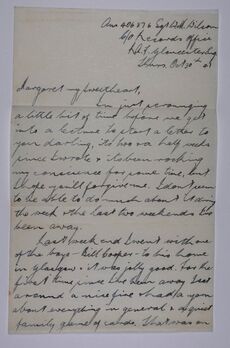 Aus 406876 Sgt D.H. Dibson
C/O Records Office
R.A.F. Gloucester
Thurs. Oct 30th
Margaret my sweetheart,
I'm just scrounging
a little bit of time before we get
into a lecture to start a letter to
you darling. It's two & a half weeks
since I wrote & its been rocking
my conscience for some time, but
I hope you'll forgive me. I don't seem
to be able to do much about it during
the week & the last two weekends I've
been away.
Last week end I went with one
of the boys - Bill Cooper - to his home
in Glasgow & it was jolly good. For the
first time since I've been away I sat
around a nice fire & had a yarn
about everything in general & a quiet
family game of cards. That was on